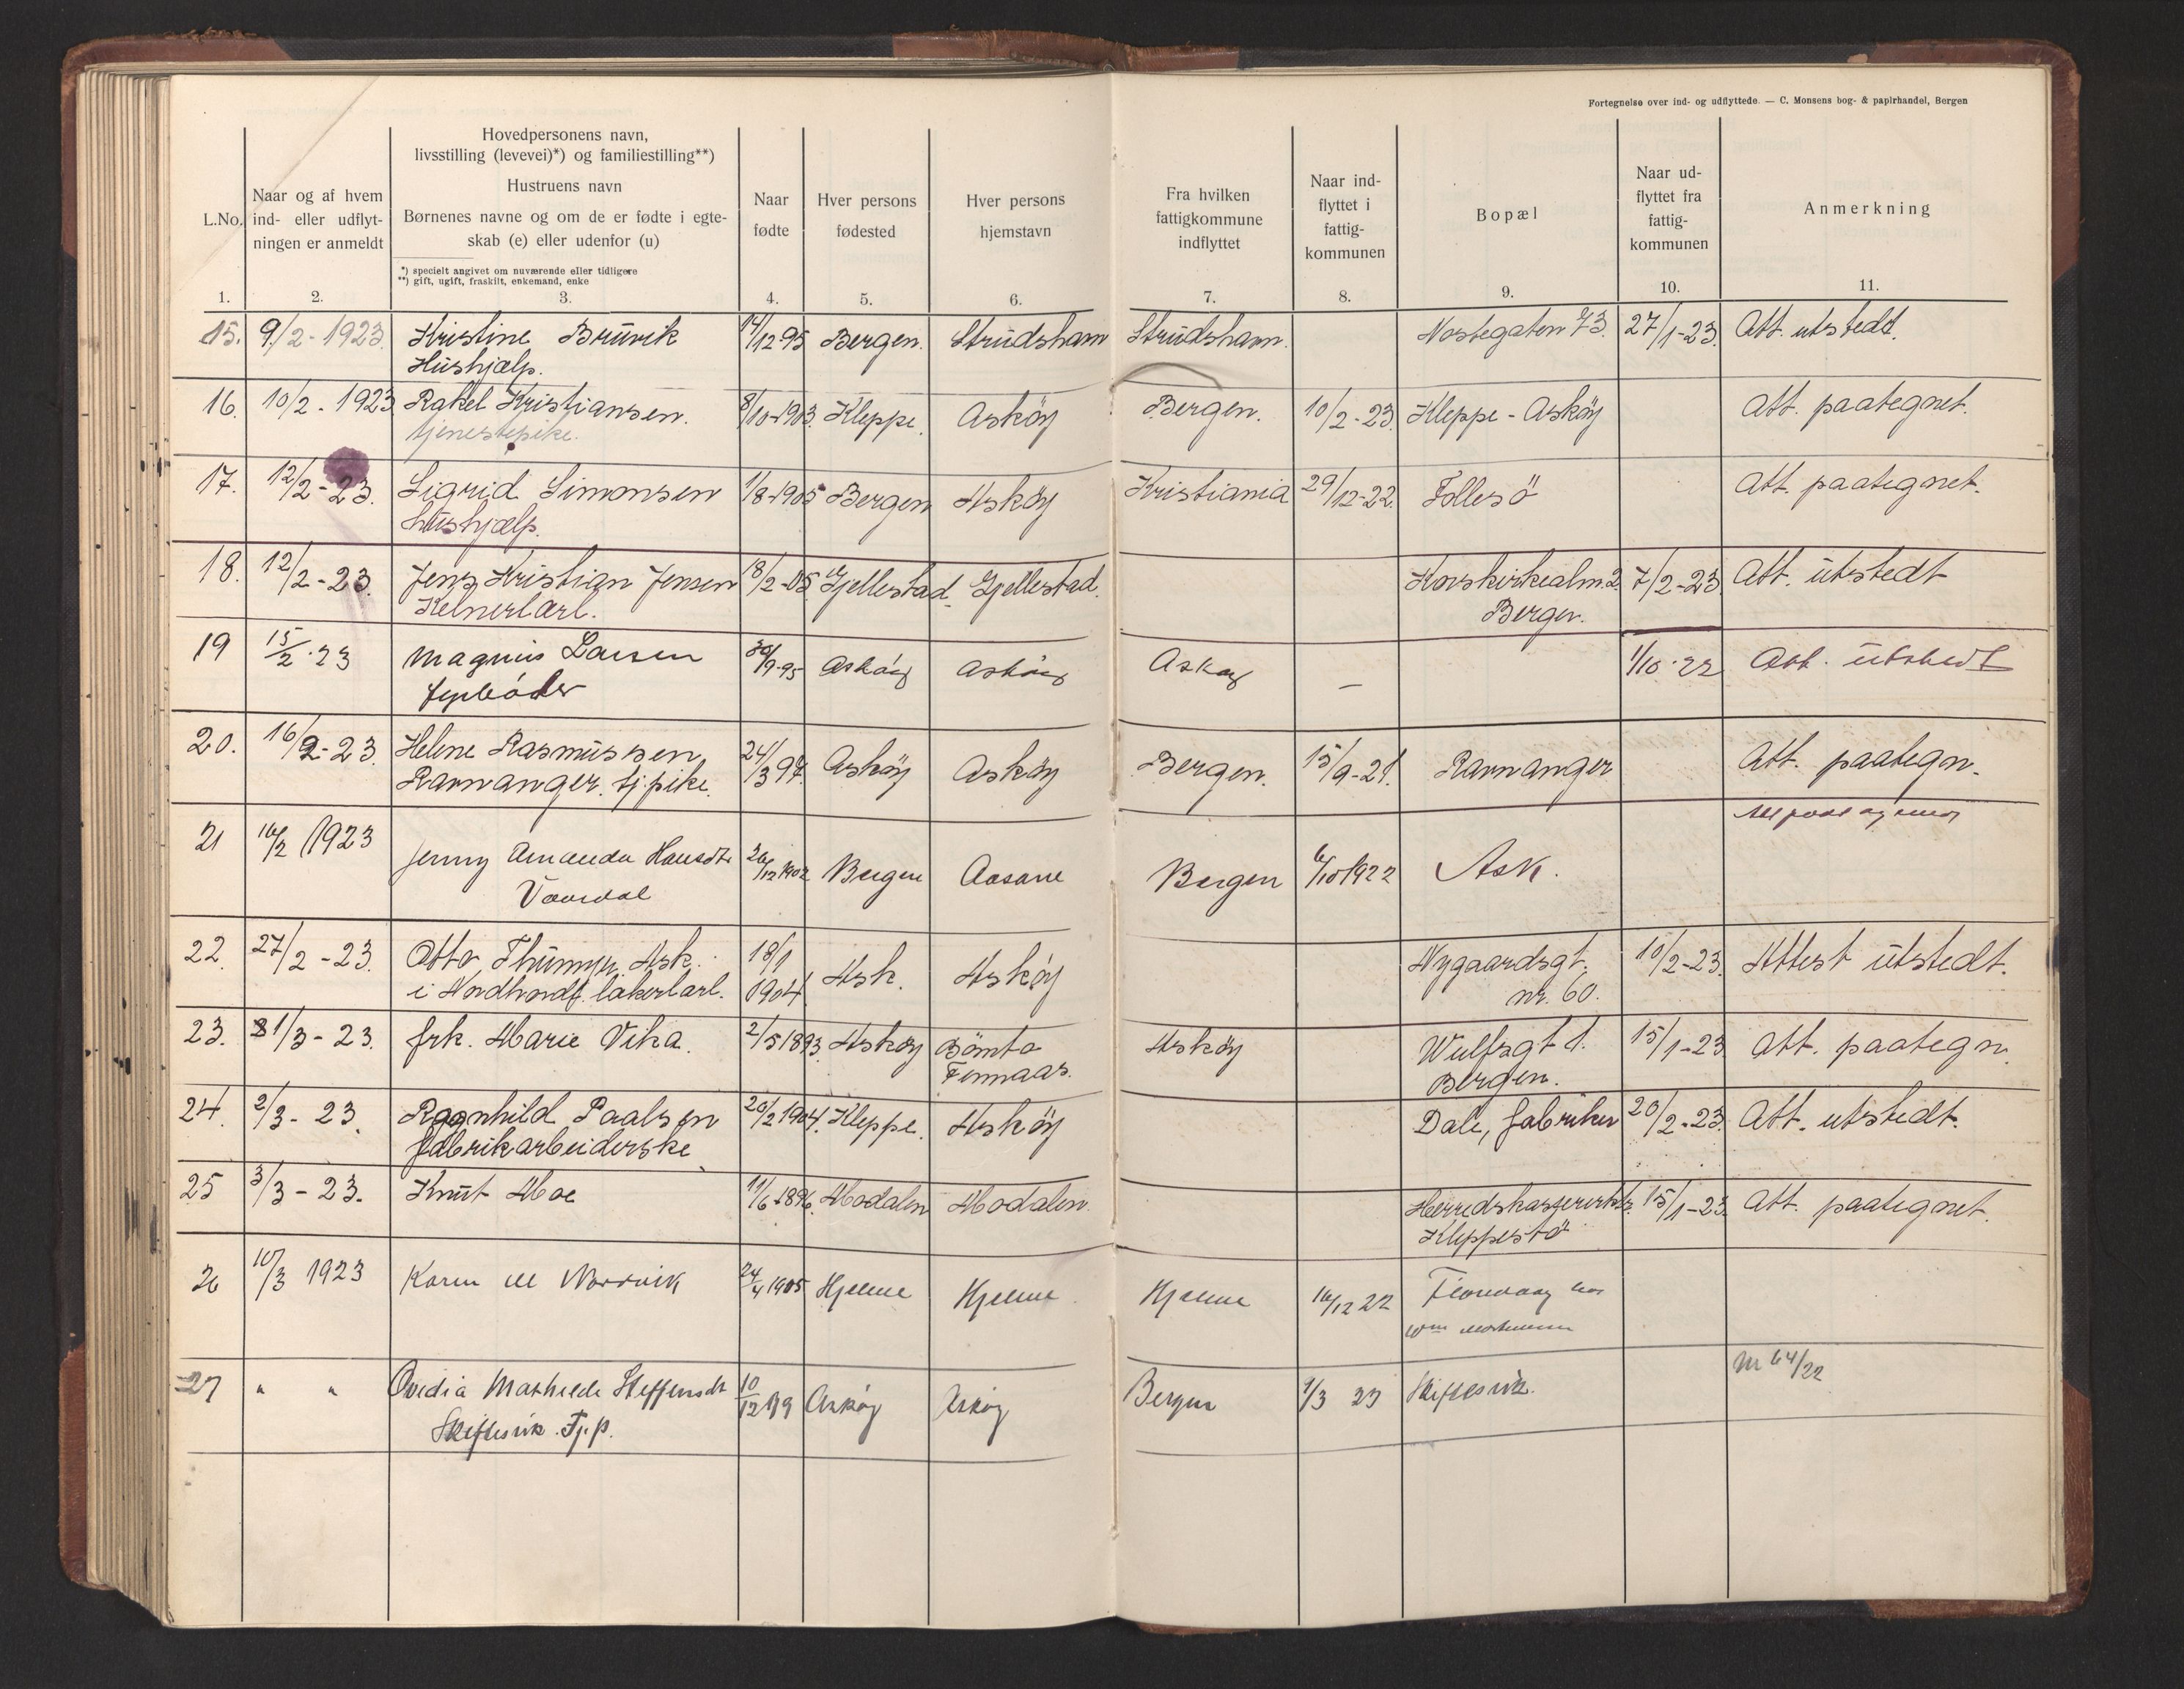 Fortegnelse over ind- og udflyttede. — C. Monsens bog- & papirhandel, Bergen
L.No.
Naar og af hvem
ind- eller udflyt-
ningen er anmeldt
Hovedpersonens navn,
livsstilling (levevei)*) og familiestilling**)
Hustruens navn
Børnenes navne og om de er fødte i egte-
skab (e) eller udenfor (u)
*) specielt angivet om nuværende eller tidligere
**) gift, ugift, fraskilt, enkemand, enke
Naar
fødte
Hver persons
fødested
Hver persons
hjemstavn
Fra hvilken
fattigkommune
indflyttet
Naar ind-
flyttet i
fattig-
kommunen
Bopæl
Naar ud-
flyttet fra
fattig-
kommunen
Anmerkning
1. 2. 3. 4. 5. 6. 7. 8. 9. 10. 11.
15. 9/2-1923. Kristine Bruvik 14/12-95 Bergen. Strudsham Strudshavn. Nostegaten 73. 27/1-23. Att. utstedt.
Hushjælp.
16. 10/2-1923 Rakel Kristiansen. 8/10-1903. Kleppe. Askøy Bergen. 10/2-23. Kleppe-Askøy Att. paategnet.
tjenestepike.
17. 12/2-23. Sigrid Simonsen 1/8-1905 Bergen Askøy Kristiania 29/12-22. Follesö Att. paategnet.
hushjælp.
18. 12/2-23. Jens Kristian Jensen 18/2-05. Gjellestad. Gjellestad. Korskirkealm. 2. 7/2-23. Att. utstedt
Kelnerlærl. Bergen.
19 15/2-23 Magnus Larsen 30/9-95 Askøy Askøy Askøy — 1/10-22 Att. utstedt
fyrbøder
20. 16/2-23. Helene Rasmussen 24/3 97. Askøy Askøy Bergen. 15/9-21. Ravnanger Att. paategn.
Ravnanger. tj.pike.
21 16/2 1923 Jenny Amanda Hansdtr 26/12 1902 Bergen Aasane Bergen 6/10 1922 Ask.
22. 27/2-23. Otto Thümyr, Ask. 18/1 Ask. Askøy Nygaardsgt. 10/2-23. Attest utstedt.
i Nordhordl. lakerlærl. 1904 nr. 60.
23. 1/3-23. frk. Marie Vika. 2/5 1893. Askøy Bömlo Askøy Wulfsgt 1. 15/1-23. Att. paategn.
Finnaas. Bergen.
24. 2/3-23. Ragnhild Paalsen 20/2 1904. Kleppe. Askøy Dale, fabriker 20/2-23. Att. utstedt.
fabrikarbeiderske
25 3/3-23. Knut Moe 11/6-1896. Modalen Modalen. Herredskassererktr. 15/1-23. Att. paategnet.
Kleppestö
26 10/3 1923 Karen M Nordvik 24/4 1905 Hjelme Hjelme Hjelme 16/12 22 Florvaag hos
27 " " Ovidia Mathilde Steffensdt 10/12 99 Askøy Askøy Bergen 1/3 23 Skiftesvik. Nr 64/22
Skiftesvik. Tj.p.